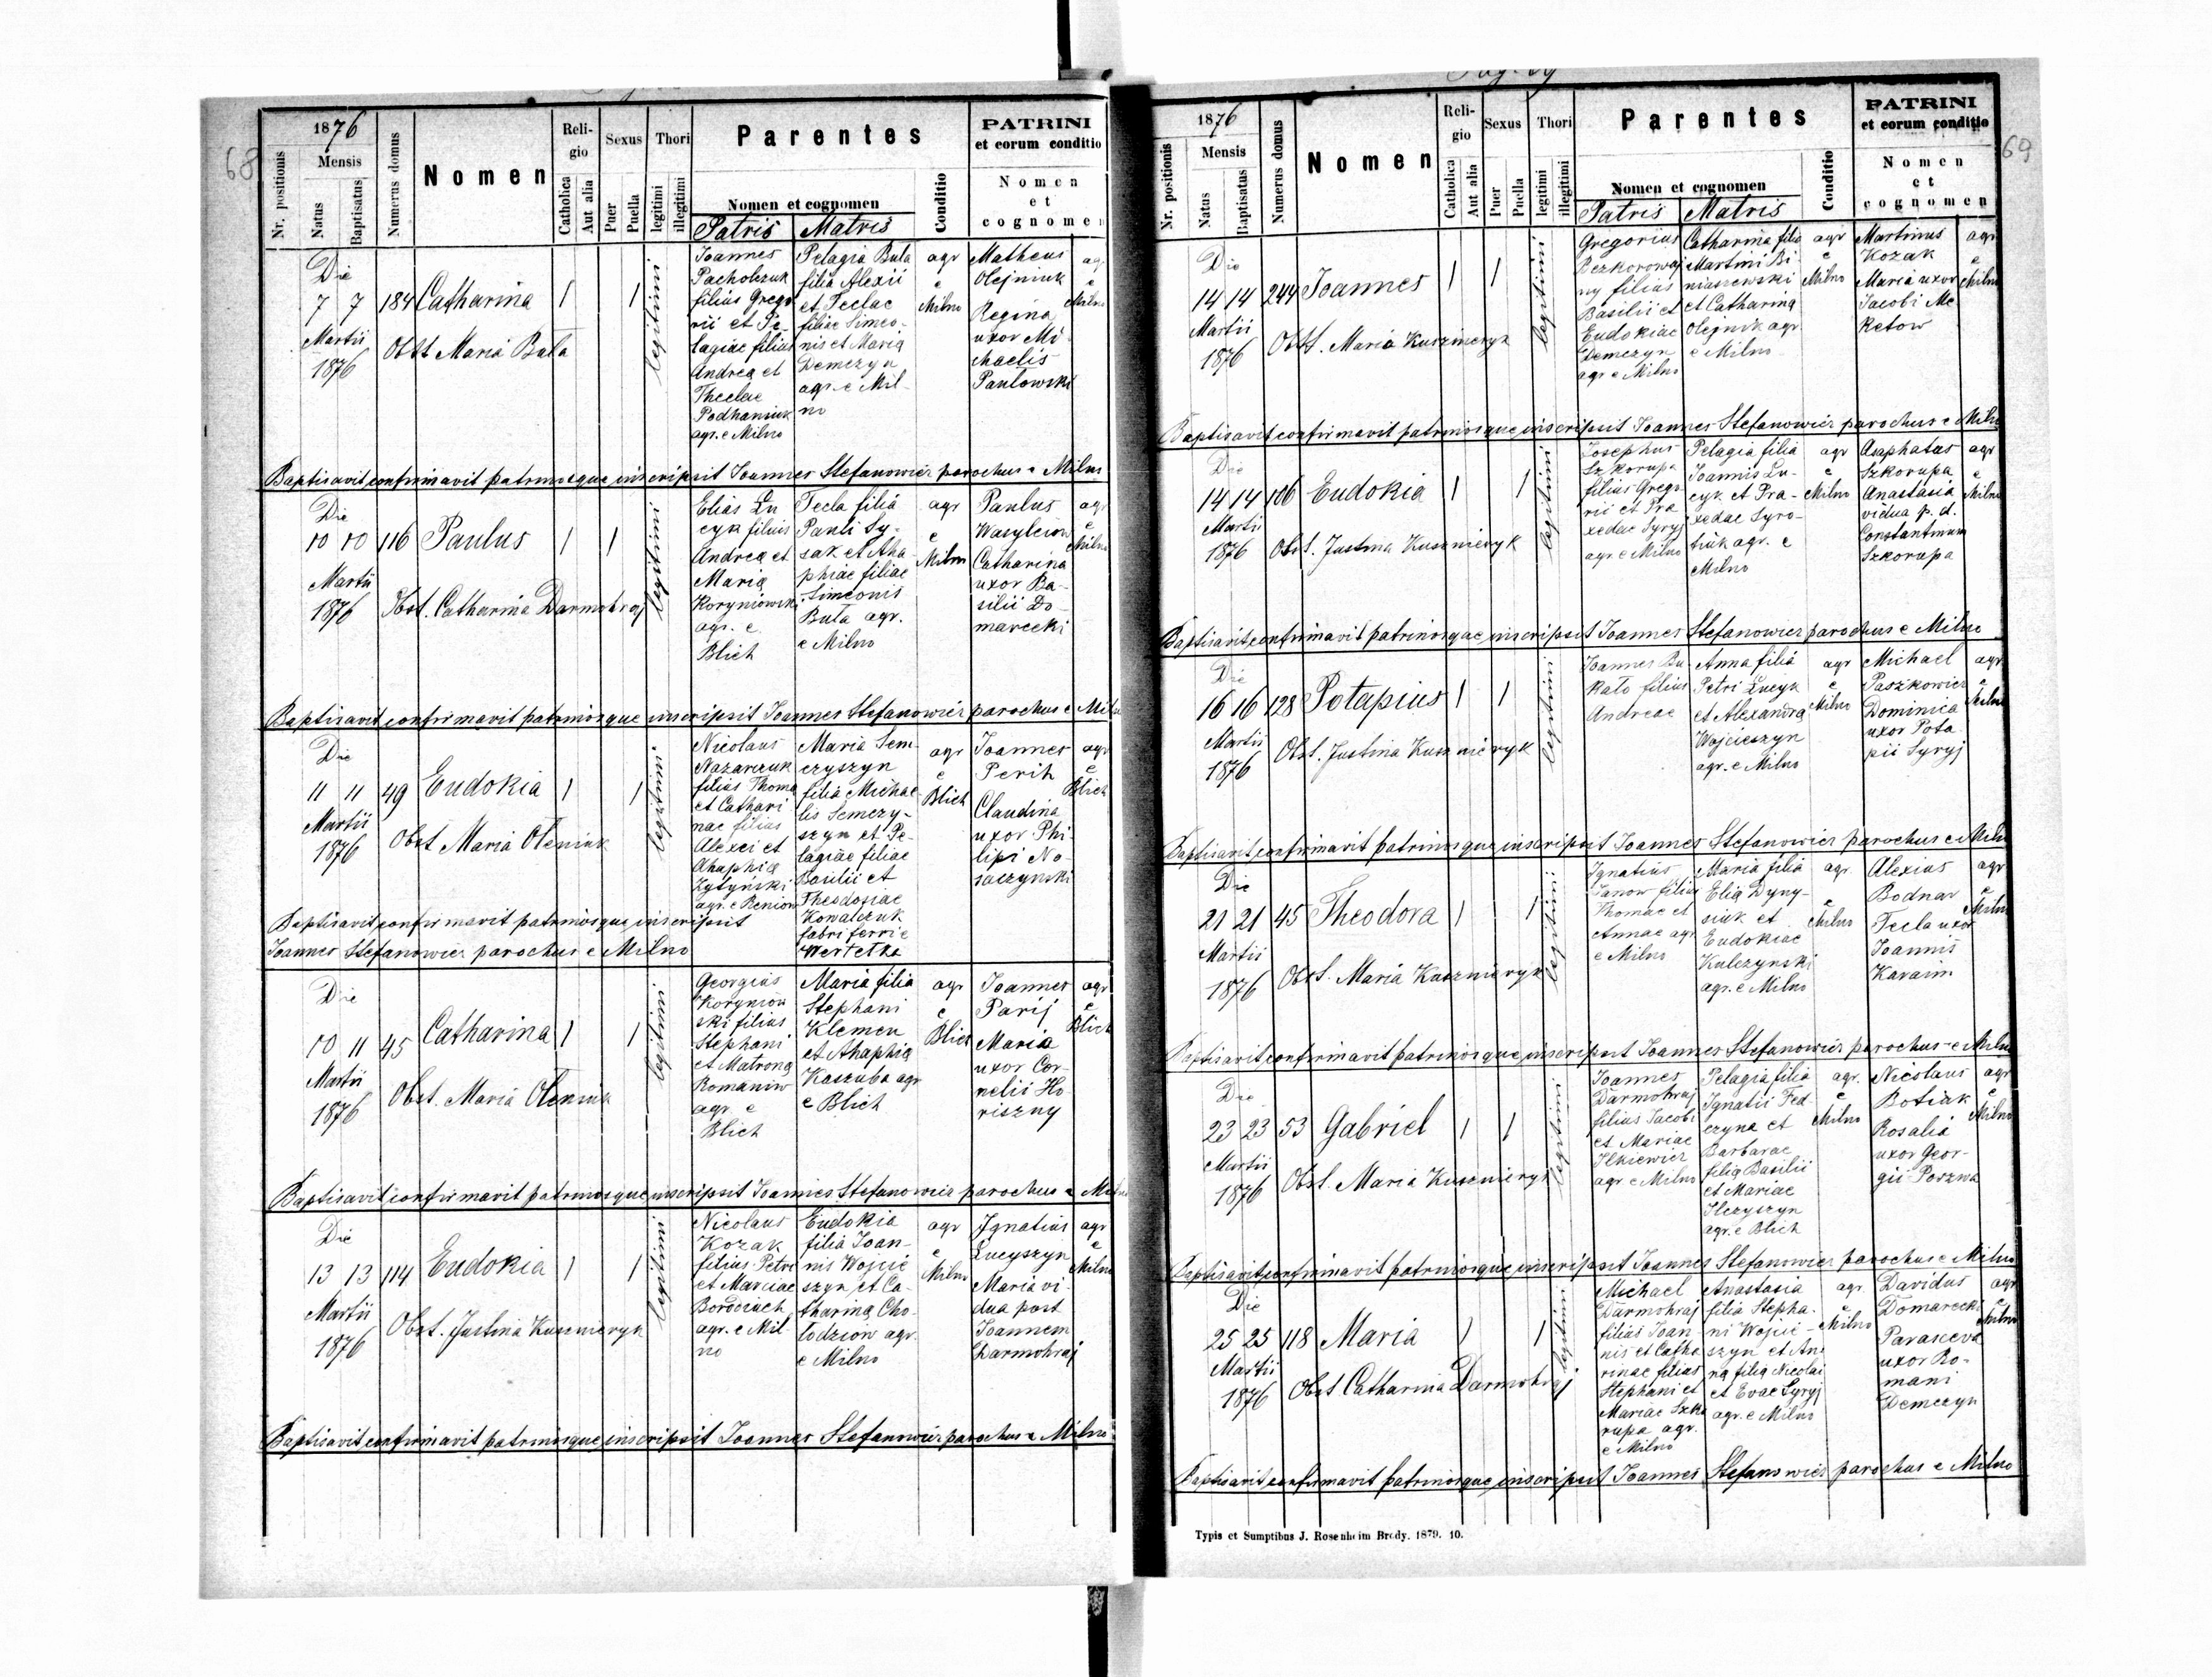 68
1876
Nr. positionis
Mensis
Natus
Baptisatus
Numerus domus
Nomen
Religio
Catholica
Aut alia
Sexus
Puer
Puella
Thori
legitimi
illegitimi
Parentes
Nomen et cognomen
Patris
Matris
Conditio
PATRINI
et eorum conditio
Nomen
et
cognomen
Die
7 7 184 Catharina 1 1
Martii
1876
Obst Maria Bula
legitimi
Joannes
Pacholczuk
filius Grego
rii et Pe-
lagiae filius
Andrea et
Theclae
Podhaniuk
agr. e Milno
Pelagia Bula
filia Alexii
et Teclae
filiae Simeo-
nis et Maria
Demczyn
agr. e Mil
no
agr
e
Milno
Matheus
Olejniuk
Regina
uxor Mi
chaelis
Pawlowski
ag
e
Milno
Baptisavit confirmavit patrinosque inscripsit Joannes Stefanowicz parochus e Milno
Die
10 10 116 Paulus 1 1
Martii
1876
Obst. Catharina Darmohraj
legitimi
Elias Lu
cyk filius
Andrea et
Maria
Koryniowski
agr. e
Blich
Tecla filia
Pauli Sy-
sak et Aha-
phiae filiae
Simeonis
Buta agr.
e Milno
agr
e
Milno
Paulus
Wasylciow
Catharina
uxor Ba-
silii Do-
marecki
agr
e
Milno
Baptisavit confirmavit patrinosque inscripsit Joannes Stefanowicz parochus e Milno
Die
11 11 49 Eudokia 1 1
Martii
1876
Obst Maria Oleniuk
legitimi
Nicolaus
Nazarczuk
filius Thoma
et Cathari
nae filias
Alexei et
Ahaphia
agr. e Reniow
Maria Sem-
czyszyn
filia Michae
lis Semczy-
szyn et Pe-
lagiae filiae
Basilii et
Theodosiae
Kowalczuk
fabri ferri e
Wertelka
agr
e
Blich
Joannes
Perih
Claudina
uxor Phi-
lipi No-
saczynski
agr
e
Blich
Baptisavit confirmavit patrinosque inscripsit
Joannes Stefanowicz parochus e Milno
Die
10 11 45 Catharina 1 1
Martii
1876
Obst. Maria Oleniuk
legitimi
Georgius
Korynion
ski filius
Stephani
et Matrona
Romaniw
agr e
Blich
Maria filia
Stephani
Klemen
et Ahaphia
Kaszuba agr
e Blich
agr
e
Blich
Joannes
Parij
Maria
uxor Cor-
nelii Ho
riszny
agr
e
Blich
Baptisavit confirmavit patrinosque inscripsit Joannes Stefanowicz parochus e Milno
Die
13 13 114 Eudokia 1 1
Martii
1876
Obst. Justina Kuszmeryk
legitimi
Nicolaus
Kozak
filius Petri
et Marciae
Borociuch
agr. e Mil
no
Eudokia
filia Joan-
nis Wojcie
szyn et Ca-
tharina Cho-
lodziow agr.
e Milno
agr
e
Milno
Ignatius
Lucyszyn
Maria vi-
dua post
Joannem
Darmohraj
agr
e
Milno
Baptisavit confirmavit patrinosque inscripsit Joannes Stefanowicz parochus e Milno
69
1876
Nr. positionis
Mensis
Natus
Baptisatus
Numerus domus
Nomen
Religio
Catholica
Aut alia
Sexus
Puer
Puella
Thori
legitimi
illegitimi
Parentes
Nomen et cognomen
Patris
Matris
Conditio
PATRINI
et eorum conditio
Nomen
et
cognomen
Die
14 14 244 Joannes 1 1
Martii
1876
Obst. Maria Kuszmeryk
legitimi
Gregorius
Bezkorowaj
ny filius
Basilii et
Eudokiae
Demczyn
agr e Milno
Catharina filia
Martini Bi-
niaszewski
et Catharina
Olejnik agr
e Milno
agr
e
Milno
Martinus
Kozak
Maria uxor
Jacobi Me
ketow
agr
e
Milno
Baptisavit confirmavit patrinosque inscripsit Joannes Stefanowicz parochus e Milno
Die
14 14 186 Eudokia 1 1
Martii
1876
Obst. Justina Kuszmieryk
legitimi
Josephus
Szkorupa
filius Grego
rii et Pra
xedae Syryj
agr e Milno
Pelagia filia
Joannis Lu-
cyk et Pra-
xedae Syro-
tiuk agr. e
Milno
agr
e
Milno
Asaphatus
Szkorupa
Anastasia
vidua p. d.
Constantinum
Szkorupa
agr
e
Milno
Baptisavit confirmavit patrinosque inscripsit Joannes Stefanowicz parochus e Milno
Die
16 16 128 Potapius 1 1
Martii
1876
Obst. Justina Kuszmieryk
legitimi
Joannes Bu
kato filius
Andreae
Anna filia
Petri Lucyk
et Alexandra
Wojcieszyn
agr. e Milno
agr
e
Milno
Michael
Paszkowicz
Dominica
uxor Pota
pii Syryj
agr
e
Milno
Baptisavit confirmavit patrinosque inscripsit Joannes Stefanowicz parochus e Milno
Die
21 21 45 Theodora 1 1
Martii
1876
Obst. Maria Kuszmieryk
legitimi
Ignatius
Janow filius
Thomae et
Annae agr
e Milno
Maria filia
Elia Dyny-
siuk et
Eudokiae
Kulczynski
agr. e Milno
agr
e
Milno
Alexius
Bodnar
Tecla uxor
Joannis
Karaim
agr
e
Milno
Baptisavit confirmavit patrinosque inscripsit Joannes Stefanowicz parochus e Milno
Die
23 23 53 Gabriel 1 1
Martii
1876
Obst. Maria Kuszmieryk
legitimi
Joannes
Darmohraj
filius Jacobi
et Mariae
Ilkiewicz
agr e Milno
Pelagia filia
Ignatii Fed-
czyna et
Barbarae
filia Basilii
et Mariae
Ilczyszyn
agr. e Blich
agr.
e
Milno
Nicolaus
Botiak
Rosalia
uxor Geor-
gii Porzwa
agr
e
Milno
Baptisavit confirmavit patrinosque inscripsit Joannes Stefanowicz parochus e Milno
Die
25 25 118 Maria 1 1
Martii
1876
Obst Catharina Darmohraj
legitimi
Michael
Darmohraj
filius Joan-
nis et Catha
rinae filias
Stephani et
Mariae Szko
rupa agr.
e Milno
Anastasia
filia Stepha-
ni Wojcie-
szyn et An-
na filia Nicolai
et Evae Syryj
agr. e Milno
agr.
e
Milno
Davidus
Domarecki
Parasceva
uxor Ro-
mani
Demczyn
agr
e
Milno
Baptisavit confirmavit patrinosque inscripsit Joannes Stefanowicz parochus e Milno
Typis et Sumptibus J. Rosenheim Brody. 1879. 10.